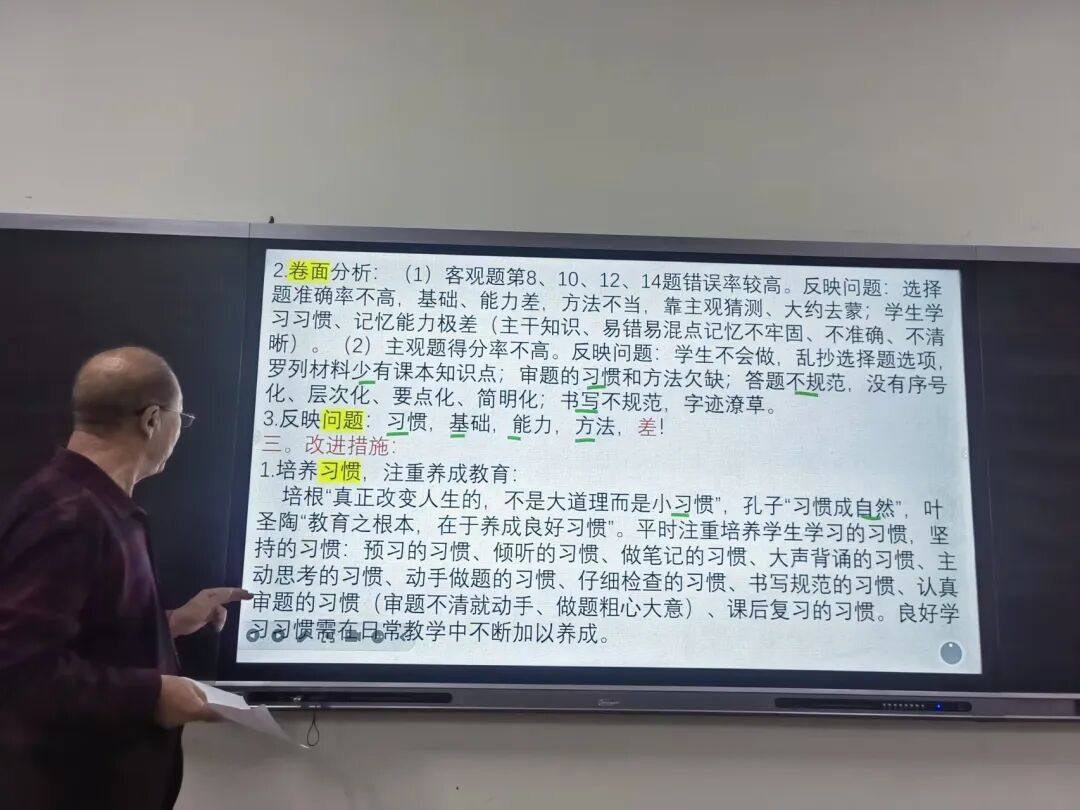 2.卷面分析：（1）客观题第8、10、12、14题错误率较高。反映问题：选择
题准确率不高，基础、能力差，方法不当，靠主观猜测、大约去蒙；学生学
习习惯、记忆能力极差（主干知识、易错易混点记忆不牢固、不准确、不清
晰）。（2）主观题得分率不高。反映问题：学生不会做，乱抄选择题选项，
罗列材料少有课本知识点；审题的习惯和方法欠缺；答题不规范，没有序号
化、层次化、要点化、简明化；书写不规范，字迹潦草。
3.反映问题：习惯，基础，能力，方法，差！
三。改进措施：
1.培养习惯，注重养成教育：
培根“真正改变人生的，不是大道理而是小习惯”，孔子“习惯成自然”，叶
圣陶“教育之根本，在于养成良好习惯”。平时注重培养学生学习的习惯，坚
持的习惯：预习的习惯、倾听的习惯、做笔记的习惯、大声背诵的习惯、主
动思考的习惯、动手做题的习惯、仔细检查的习惯、书写规范的习惯、认真
审题的习惯（审题不清就动手、做题粗心大意）、课后复习的习惯。良好学
习习惯需在日常教学中不断加以养成。